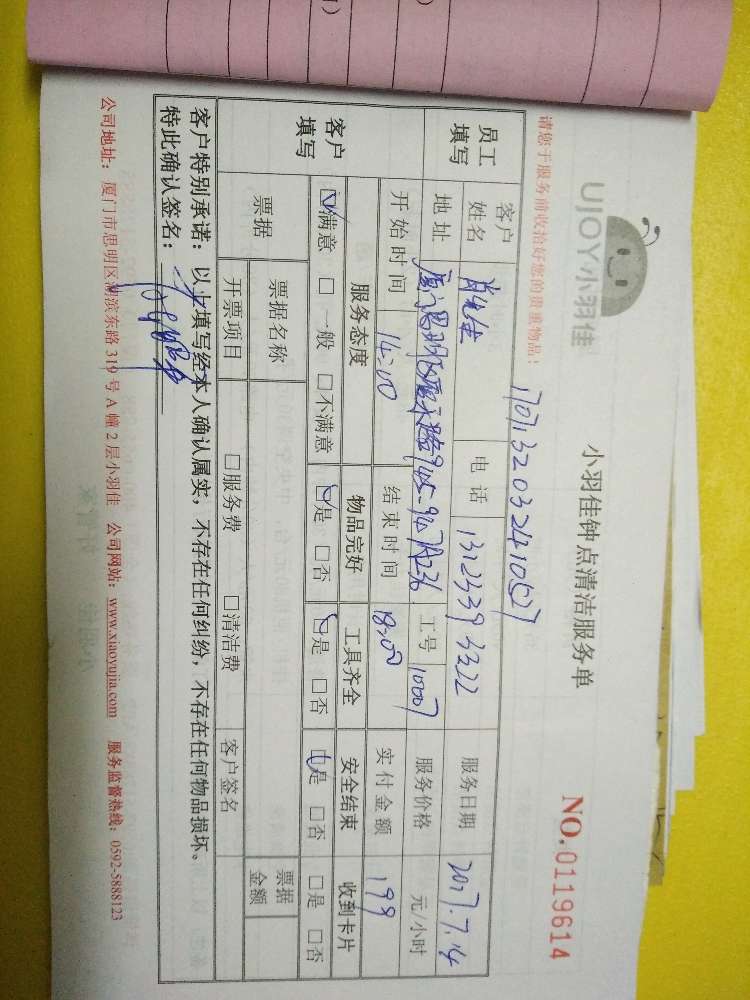 UJOY小羽佳
小羽佳钟点清洁服务单
NO.0119614
请您于服务前收拾好您的贵重物品！
员工填写
客户姓名
电话
服务日期 2017.7.14
地址
工号 10007
服务价格 元/小时
开始时间 14:00 结束时间 18:00 实付金额 199
客户填写
服务态度 物品完好 工具齐全 安全结束 收到卡片
☑满意 □一般 □不满意 ☑是 □否 ☑是 □否 ☑是 □否 □是 □否
票据 票据名称 票据金额
开票项目 □服务费 □清洁费 客户签名
客户特别承诺：以上填写经本人确认属实，不存在任何纠纷，不存在任何物品损坏。
特此确认签名：
公司地址：厦门市思明区湖滨东路 319 号 A 幢 2 层小羽佳 公司网站：www.xiaoyujia.com 服务监督热线：0592-5888123